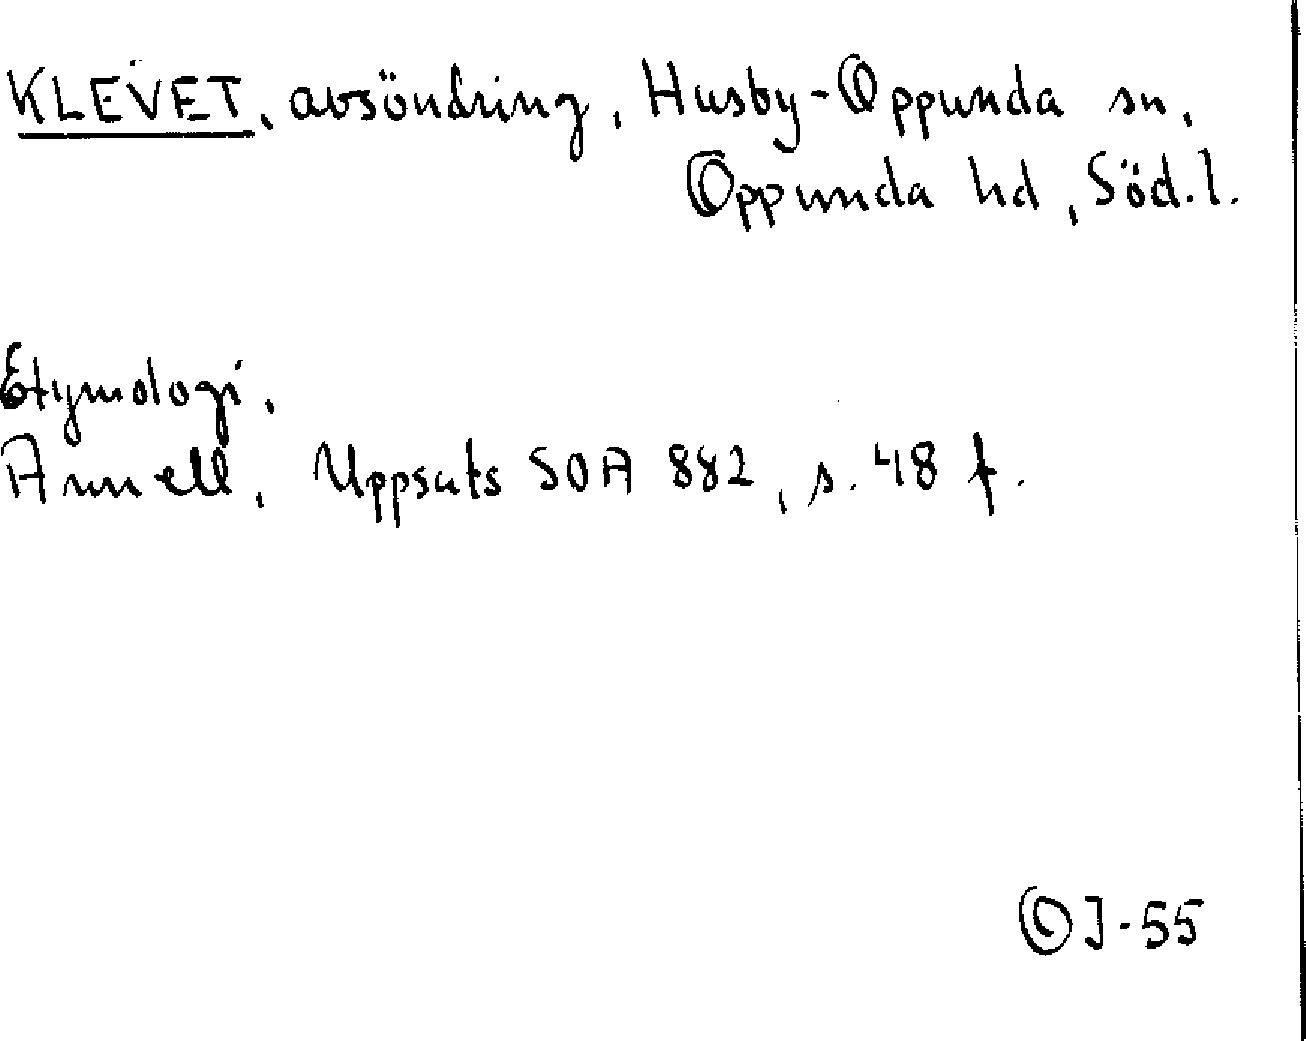 KLEVET, avsöndring, Husby-Oppunda sn,
Oppunda hd, Söd.l.
Etymologi.
Arnell, Uppsats SOA 882, s. 48 f.
OJ-55